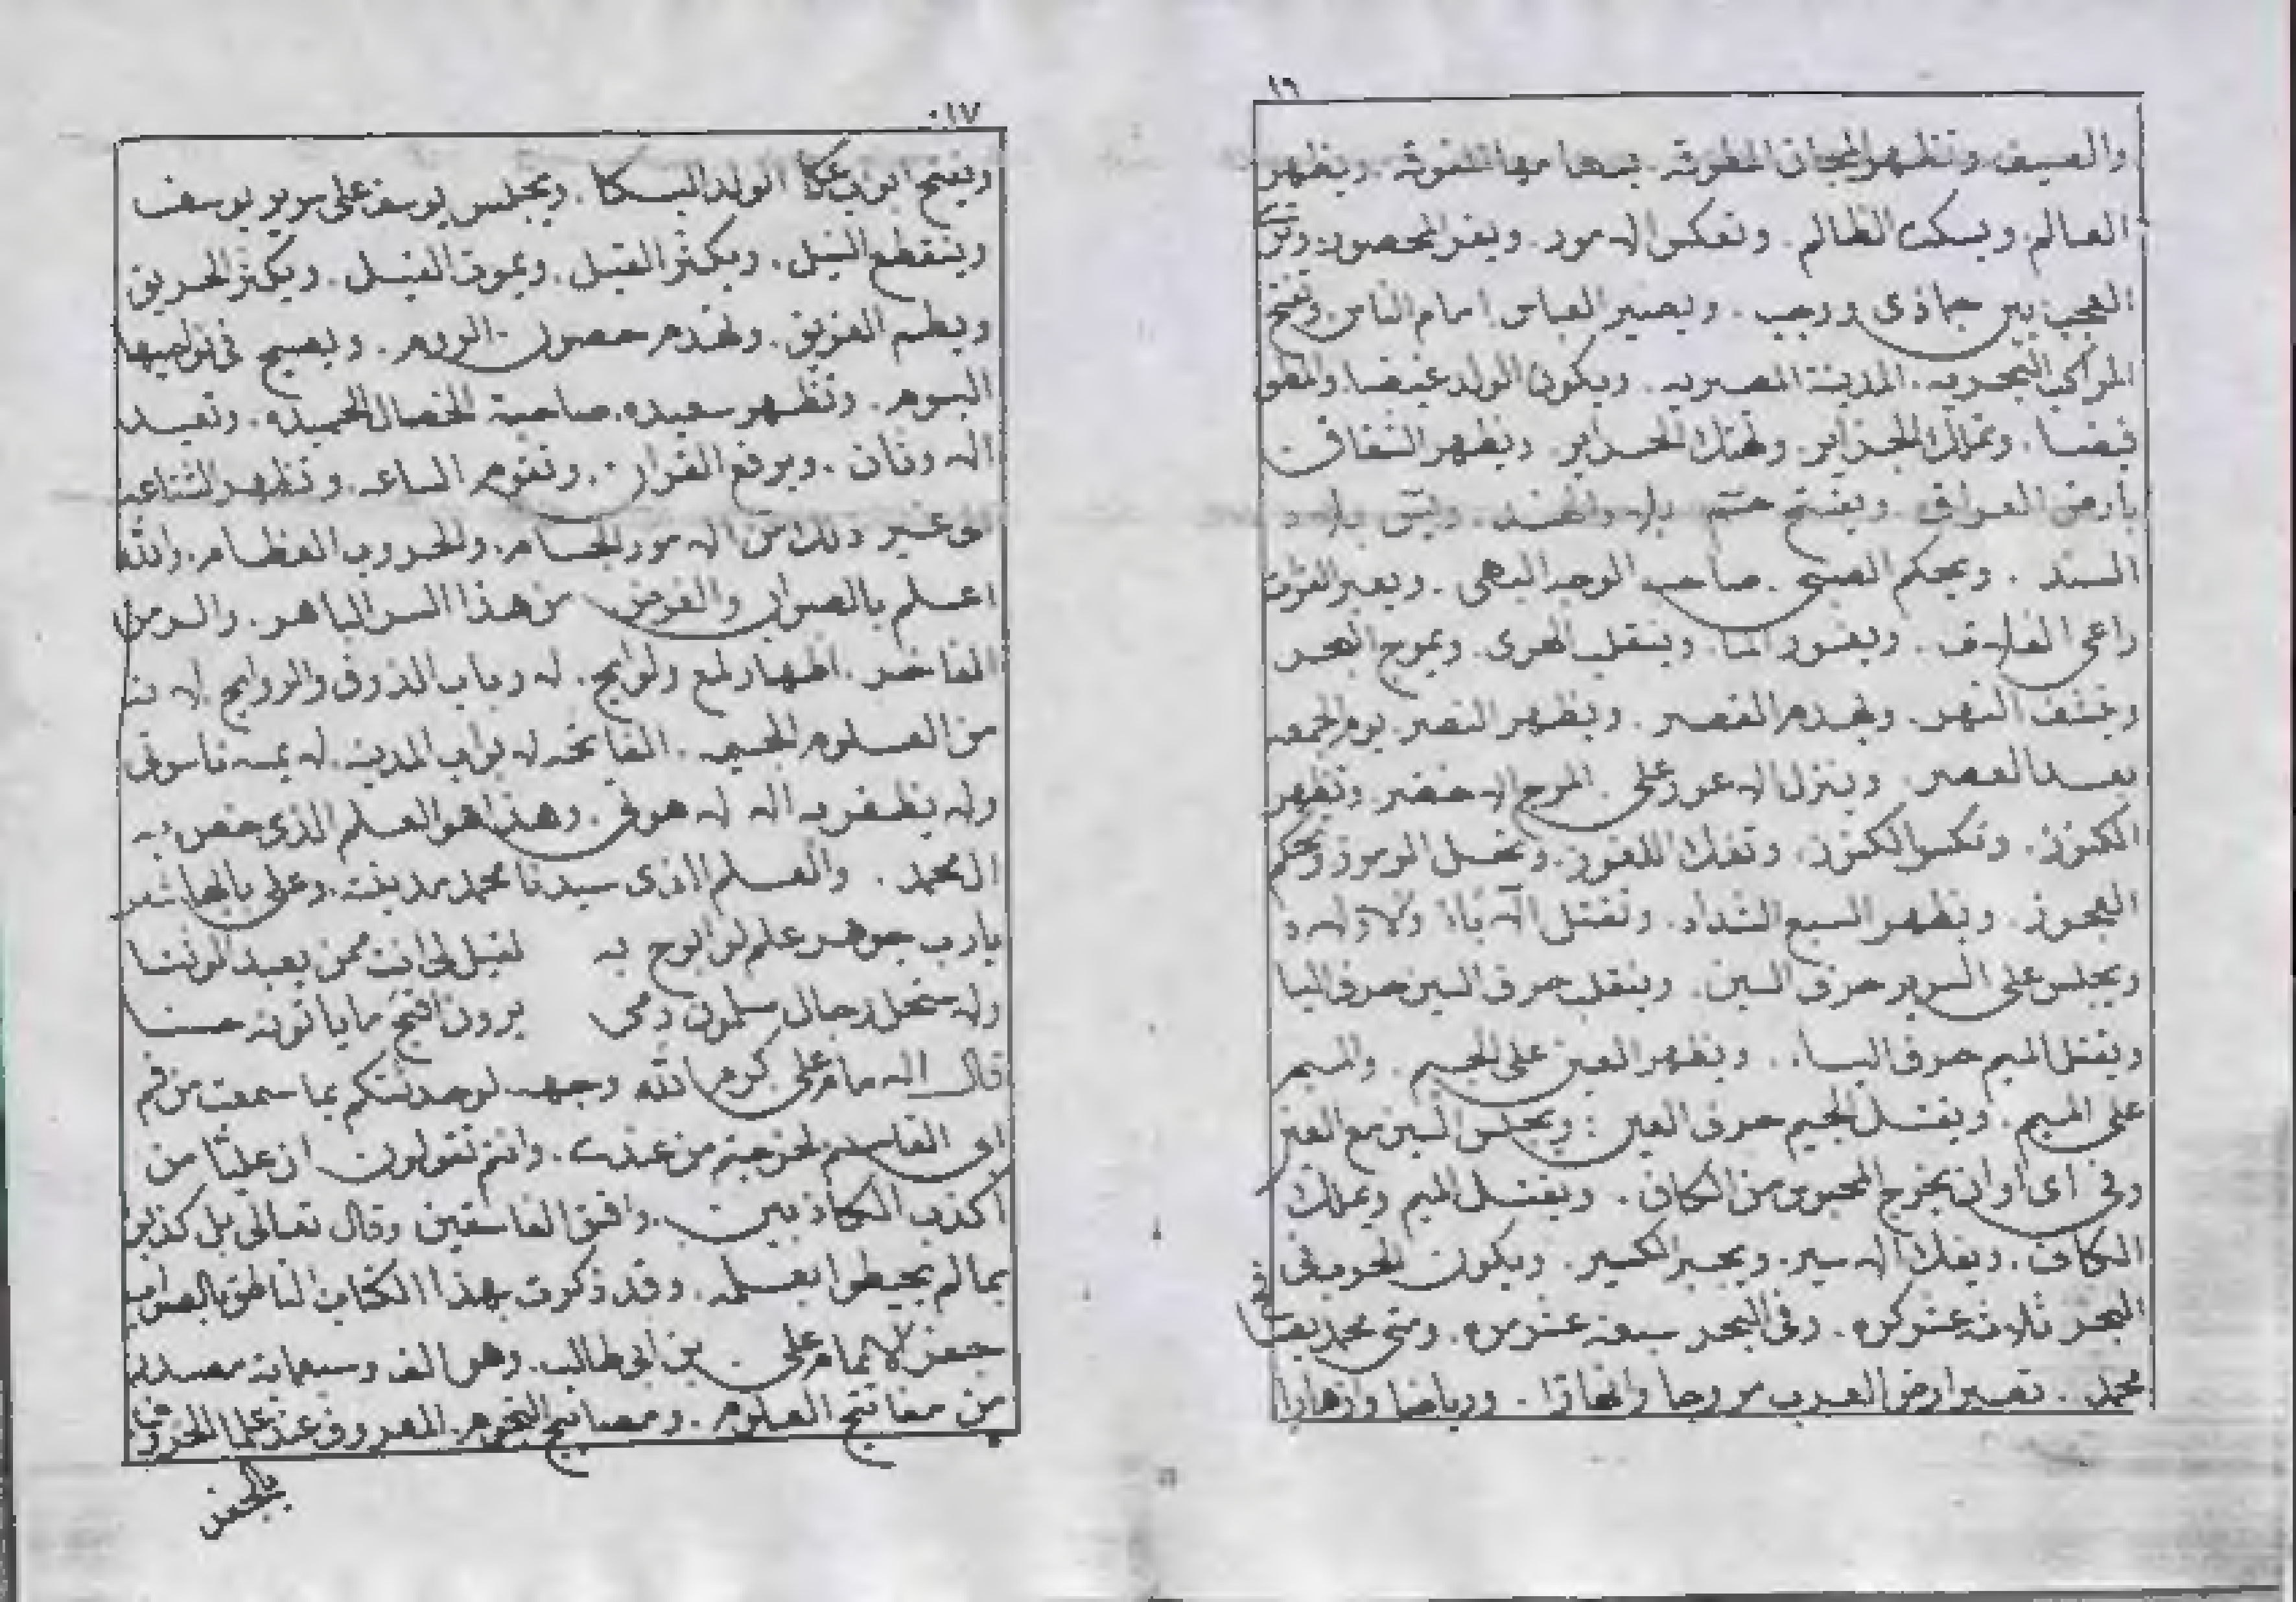 ١٦
والصيف وتظهر المجان المطرقة ويظهر
العالم. ويسكت الظالم. وتعكس الامور. ويفر المحصور
العجب بين جماذى ورجب. ويصير العباس امام الناس. وتفتح
المراكب البحريه. المدينة المصريه. ويكون الولد غيضا. والمطر
قيضا. وتملك الجزاير. وتهتك الحراير. ويظهر الشقاق
بارض العراق. ويفتح بلاد الهند. بلاد
السند. ويحكم الصبى. صاحب الوجه البهى. ويعبر الفرات
راعى. ويغور الما. وينقلب الهوى. ويموج البحر
وينشف النهر. ويهدم القصر. ويظهر النصر. يوم الجمعه
بعد العصر. وينزل الاعور على المرج الاخضر. وتظهر
الكنوز. وتفك اللغوز. وتحل الرموز وتحكم
العجوز. وتظهر السبع الشداد. وتقتل الاباء والاولاد
ويجلس على السرير حرف السين. وينقلب حرف السين حرف اليا
ويقتل الميم حرف اليا.. ويظهر العين على الجيم. والميم
على الميم. ويقتل الجيم حرف العين: ويجلس السين مع العين
وفى اى اوان يخرج المحبوس من الكاف. ويقتل الميم ويملك
الكاف. ويفك الاسير. ويجبر الكسير. ويكون الحرب فى
البحر ثلاثة عشر كره. وفى البحر سبعة عشر مره. ومتى محمد
محمد. تصير ارض العرب مروجا وانهارا. ورياضا وازهارا
١٧
ويفتح ابواب عكا الولد البكا. ويجلس يوسف على سرير يوسف
وينقطع النيل. ويكثر القتيل. ويموت الفيل. ويكثر الحريق
ويطم الغريق. وتهدم حصون الروم. ويصيح فى نواحيها
البوم. وتظهر سعيده. صاحبة الخصال الحميده. وتعبد
الاوثان. ويرفع القران. وتقوم الساعه. وتظهر الشناعه
الى غير ذلك من الامور الجسام. والحروب العظام. والله
اعلم بالصواب والغرض من هذا السر الباهر. والرمز
الفاخر. اظهار لمع ولوايح. لارباب الذوق والروايح
من العلوم. الفاتحه لابواب المدينه. لا يمسه ناسوتى
ولا يظفر به الا لاهوتى. وهذا هو العلم الذى خص به
ال محمد. والعلم الذى سيدنا محمد مدينته. وعلى بابها شعر
يارب جوهر علم لو ابوح به لقيل لى انت ممن يعبد الوثنا
ولاستحل رجال مسلمون دمى يرون اقبح ما ياتونه حسنا
قال الامام على كرم الله وجهه لو حدثتكم بما سمعت من فم
ابى القاسم لخرجتم من عندى. وانتم تقولون ان عليا من
اكذب الكاذبين. وافسق الفاسقين وقال تعالى بل كذبوا
بما لم يحيطوا بعلمه. وقد ذكرت بهذا الكتاب الناطق بالصواب
جفر الامام على بن ابى طالب. وهو الف وسبعمائة مصدر
من مفاتيح العلوم. ومصابيح النجوم. المعروف عند علما الحروف
بالجفر